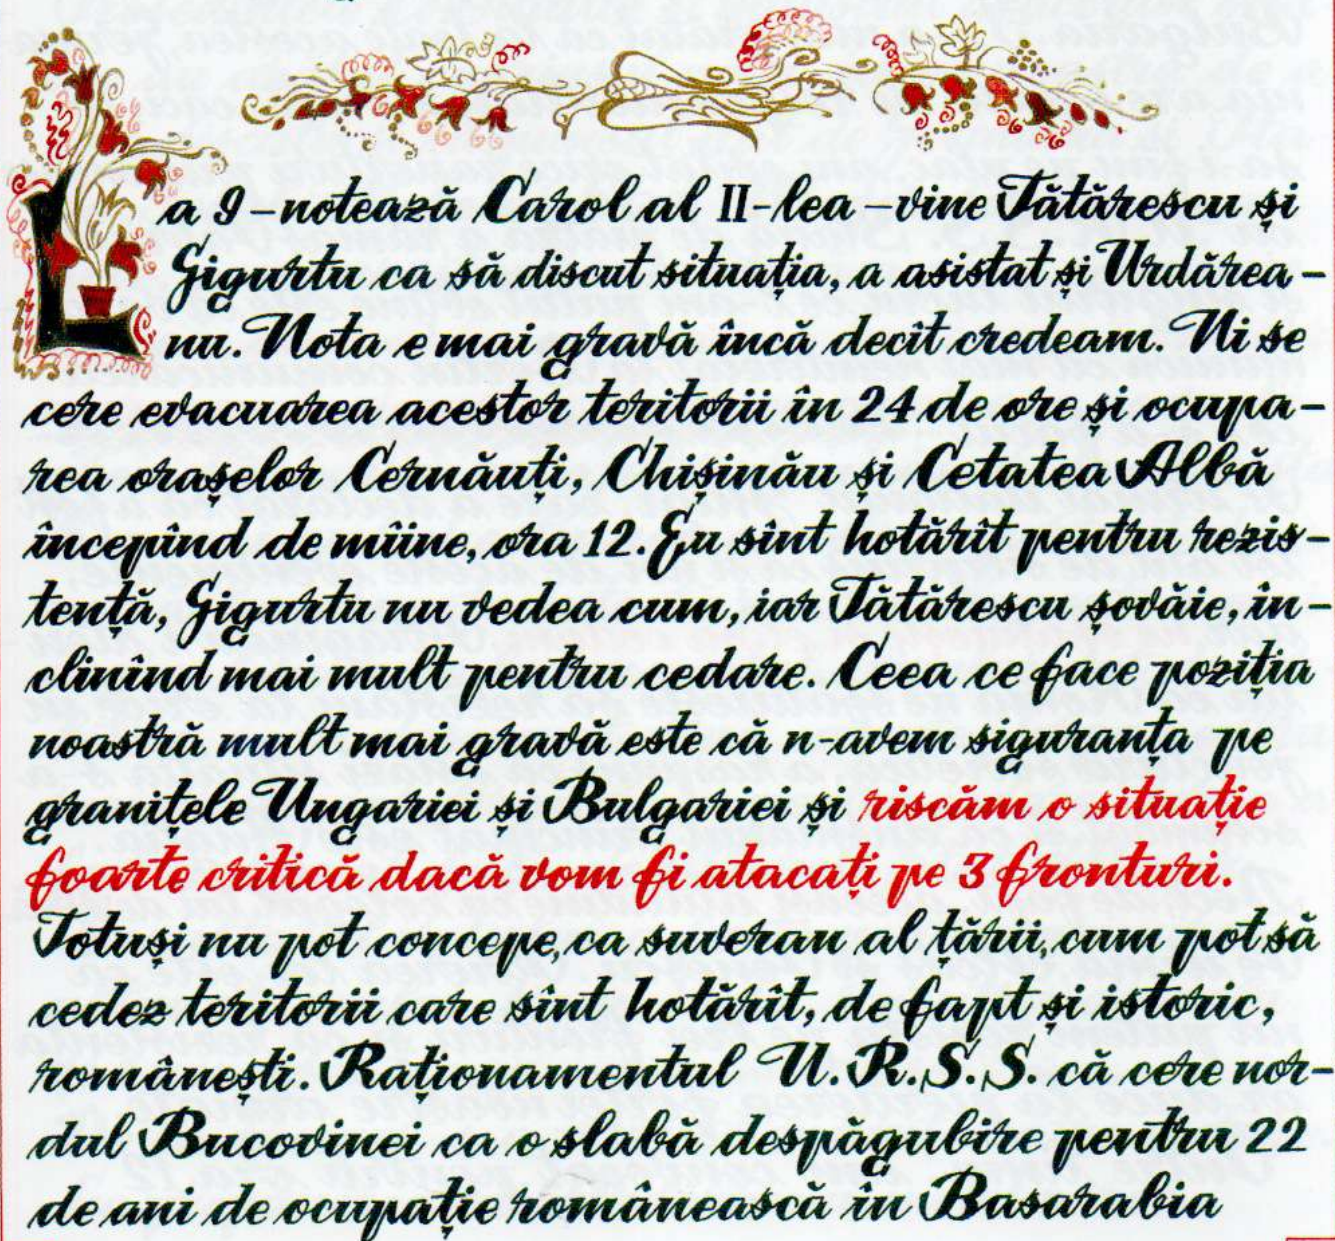 La 9 – notează Carol al II-lea – vine Tătărescu și
Gigurtu ca să discut situația, a asistat și Urdărea-
nu. Nota e mai gravă încă decît credeam. Ni se
cere evacuarea acestor teritorii în 24 de ore și ocupa-
rea orașelor Cernăuți, Chișinău și Cetatea Albă
începînd de mîine, ora 12. Eu sînt hotărît pentru rezis-
tență, Gigurtu nu vedea cum, iar Tătărescu șovăie, în-
clinînd mai mult pentru cedare. Ceea ce face poziția
noastră mult mai gravă este că n-avem siguranța pe
granițele Ungariei și Bulgariei și riscăm o situație
foarte critică dacă vom fi atacați pe 3 fronturi.
Totuși nu pot concepe, ca suveran al țării, cum pot să
cedez teritorii care sînt hotărît, de fapt și istoric,
românești. Raționamentul U.R.S.S. că cere nor-
dul Bucovinei ca o slabă despăgubire pentru 22
de ani de ocupație românească în Basarabia